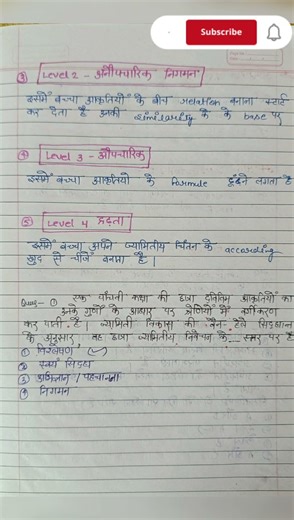 Subscribe
③ Level 2 - अनौपचारिक निगमन
इसमें बच्चा आकृतियों के बीच relation बनाना स्टार्ट
कर देता है उनकी similarity के के base पर
④ Level 3 - औपचारिक
इसमें बच्चा आकृतियो के formule ढूंढने लगता है
⑤ Level 4 दृढ़ता
इसमें बच्चा अपने ज्यामितीय चिंतन के according
खुद से चीजें बनाता है |
Ques - ① एक पाँचवी कक्षा की छात्रा आकृतियों का
उनके गुणों के आधार पर श्रेणियों में वर्गीकरण
कर पाती है | ज्यामिती विकास की वैन - हैले सिद्धान्त
के अनुसार, वह छात्रा ज्यामितीय के - स्तर पर है
① विश्लेषण (✓)
② स्वयं सिद्धता
③ अभिज्ञान / पहचानना
④ निगमन